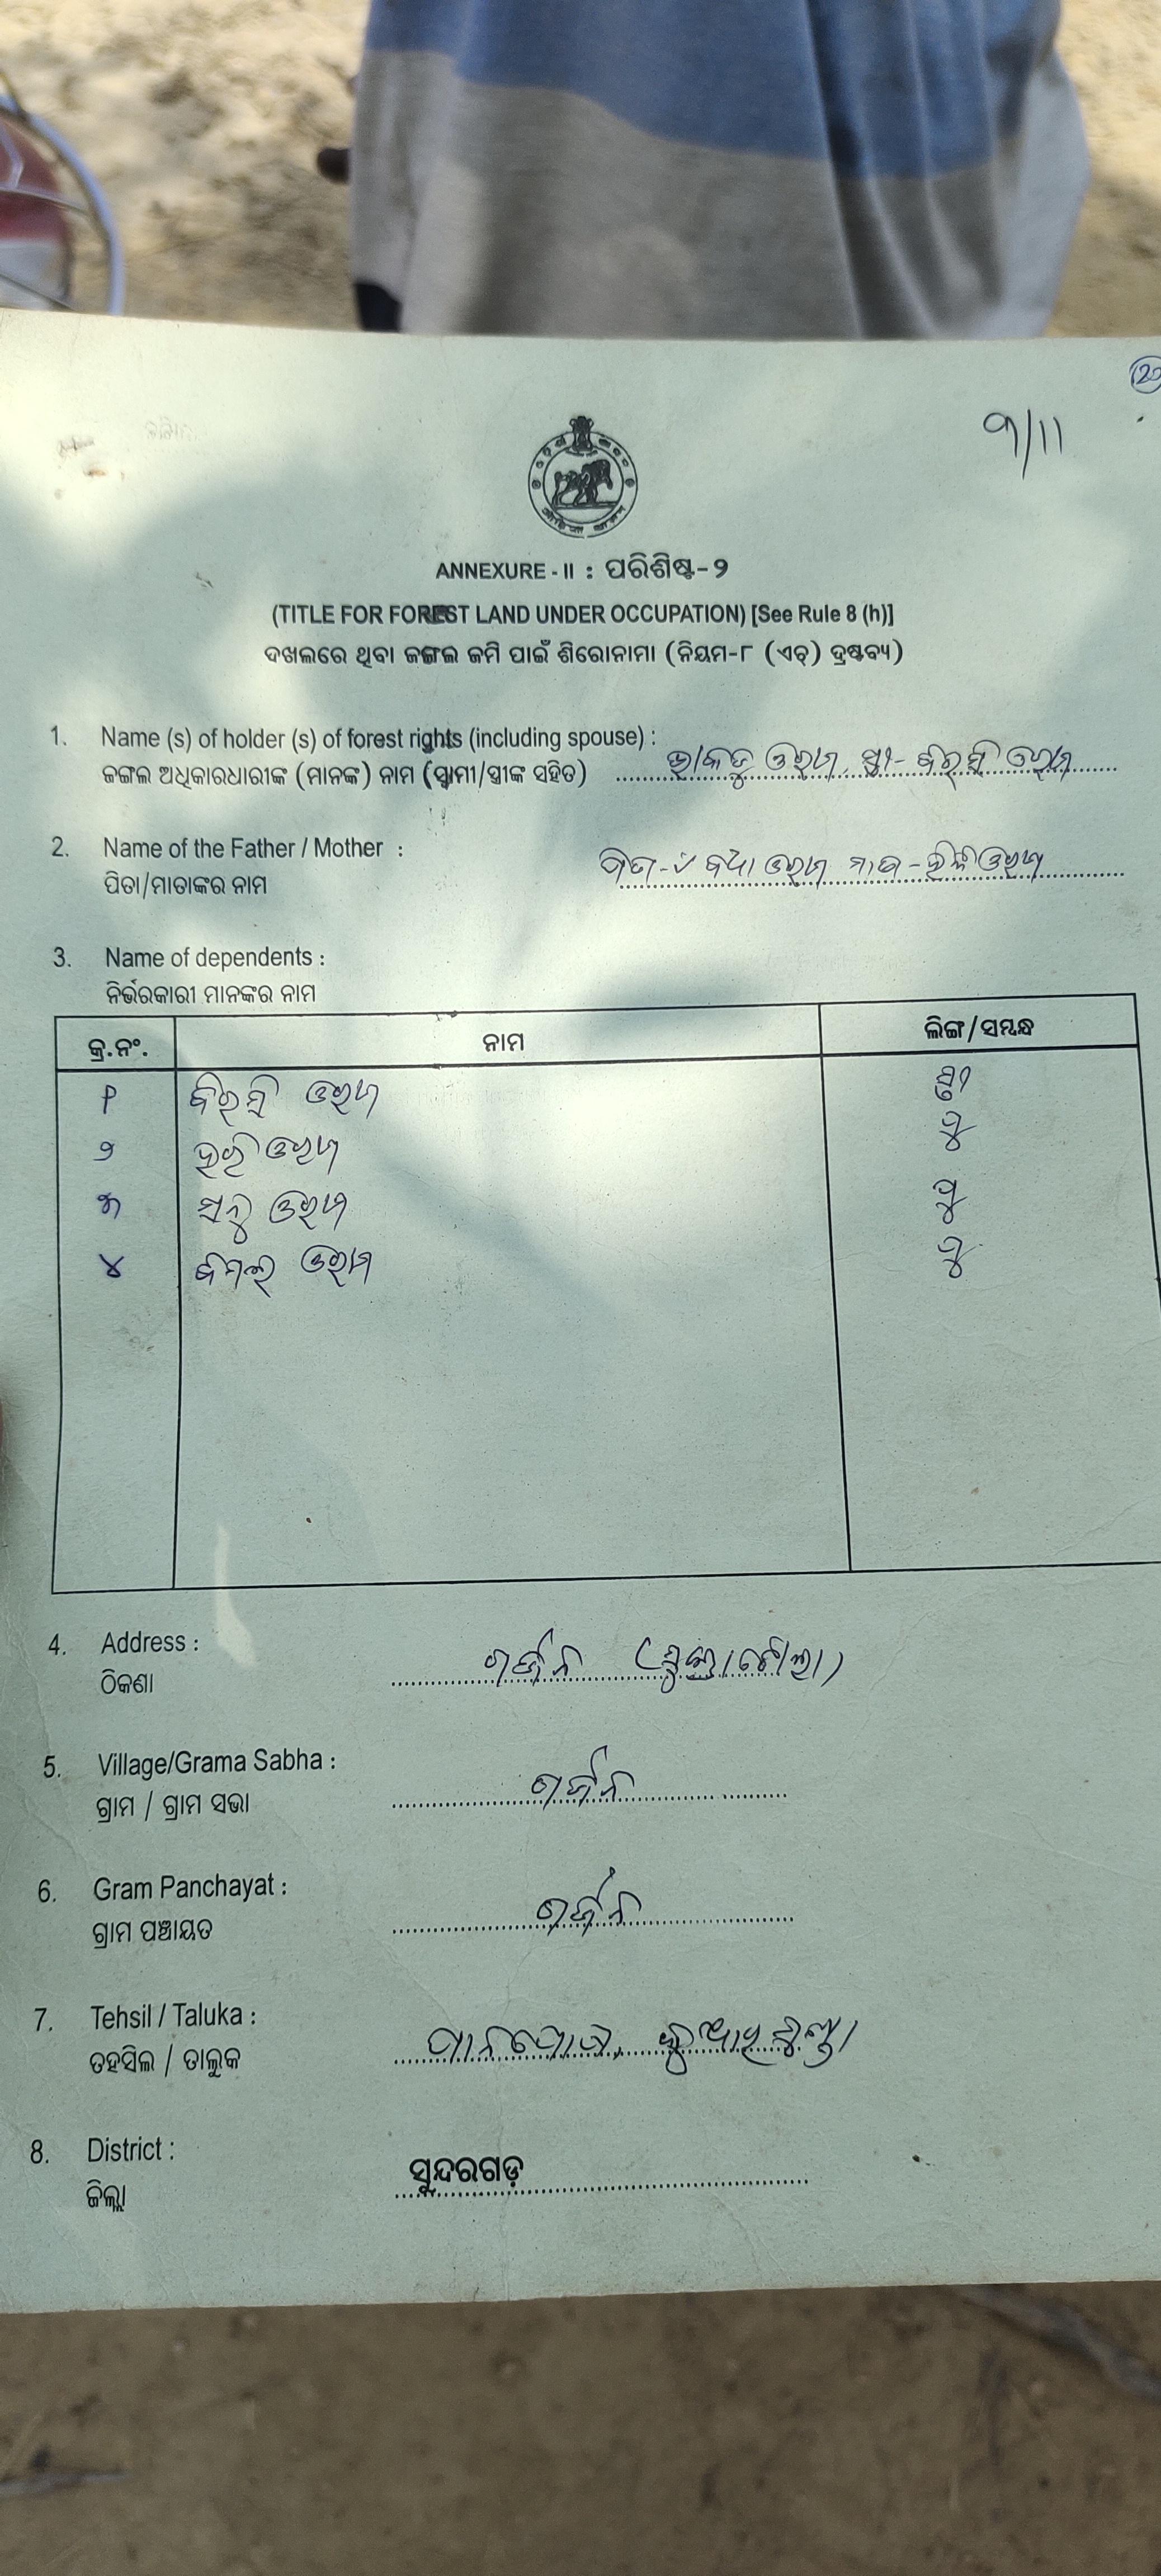 20
୩/11
ANNEXURE - II : ପରିଶିଷ୍ଟ-୨
(TITLE FOR FOREST LAND UNDER OCCUPATION) [See Rule 8 (h)]
ଦଖଲରେ ଥିବା ଜଙ୍ଗଲ ଜମି ପାଇଁ ଶିରୋନାମା (ନିୟମ-୮ (ଏଚ୍) ଦ୍ରଷ୍ଟବ୍ୟ)
1. Name (s) of holder (s) of forest rights (including spouse) :
ଜଙ୍ଗଲ ଅଧିକାରଧାରୀଙ୍କ (ମାନଙ୍କ) ନାମ (ସ୍ୱାମୀ/ସ୍ତ୍ରୀଙ୍କ ସହିତ) ଓରାମ, ସ୍ତ୍ରୀ- ବିରସି ଓରାମ
2. Name of the Father / Mother :
ପିତା/ମାତାଙ୍କର ନାମ ପିତା- ଓରାମ ମାତା- ଓରାମ
3. Name of dependents :
ନିର୍ଭରକାରୀ ମାନଙ୍କର ନାମ
କ୍ର.ନଂ. ନାମ ଲିଙ୍ଗ/ସମ୍ବନ୍ଧ
୧ ବିରସି ଓରାମ ସ୍ତ୍ରୀ
୨ ହରି ଓରାମ ପୁ
୩ ସନୁ ଓରାମ ପୁ
୪ ବିମଲ ଓରାମ ପୁ
4. Address :
ଠିକଣା ଗର୍ଜନ
5. Village/Grama Sabha :
ଗ୍ରାମ / ଗ୍ରାମ ସଭା ଗର୍ଜନ
6. Gram Panchayat :
ଗ୍ରାମ ପଞ୍ଚାୟତ ଗର୍ଜନ
7. Tehsil / Taluka :
ତହସିଲ / ତାଲୁକ ପାନପୋଷ, କୁଆରମୁଣ୍ଡା
8. District :
ଜିଲ୍ଲା ସୁନ୍ଦରଗଡ଼